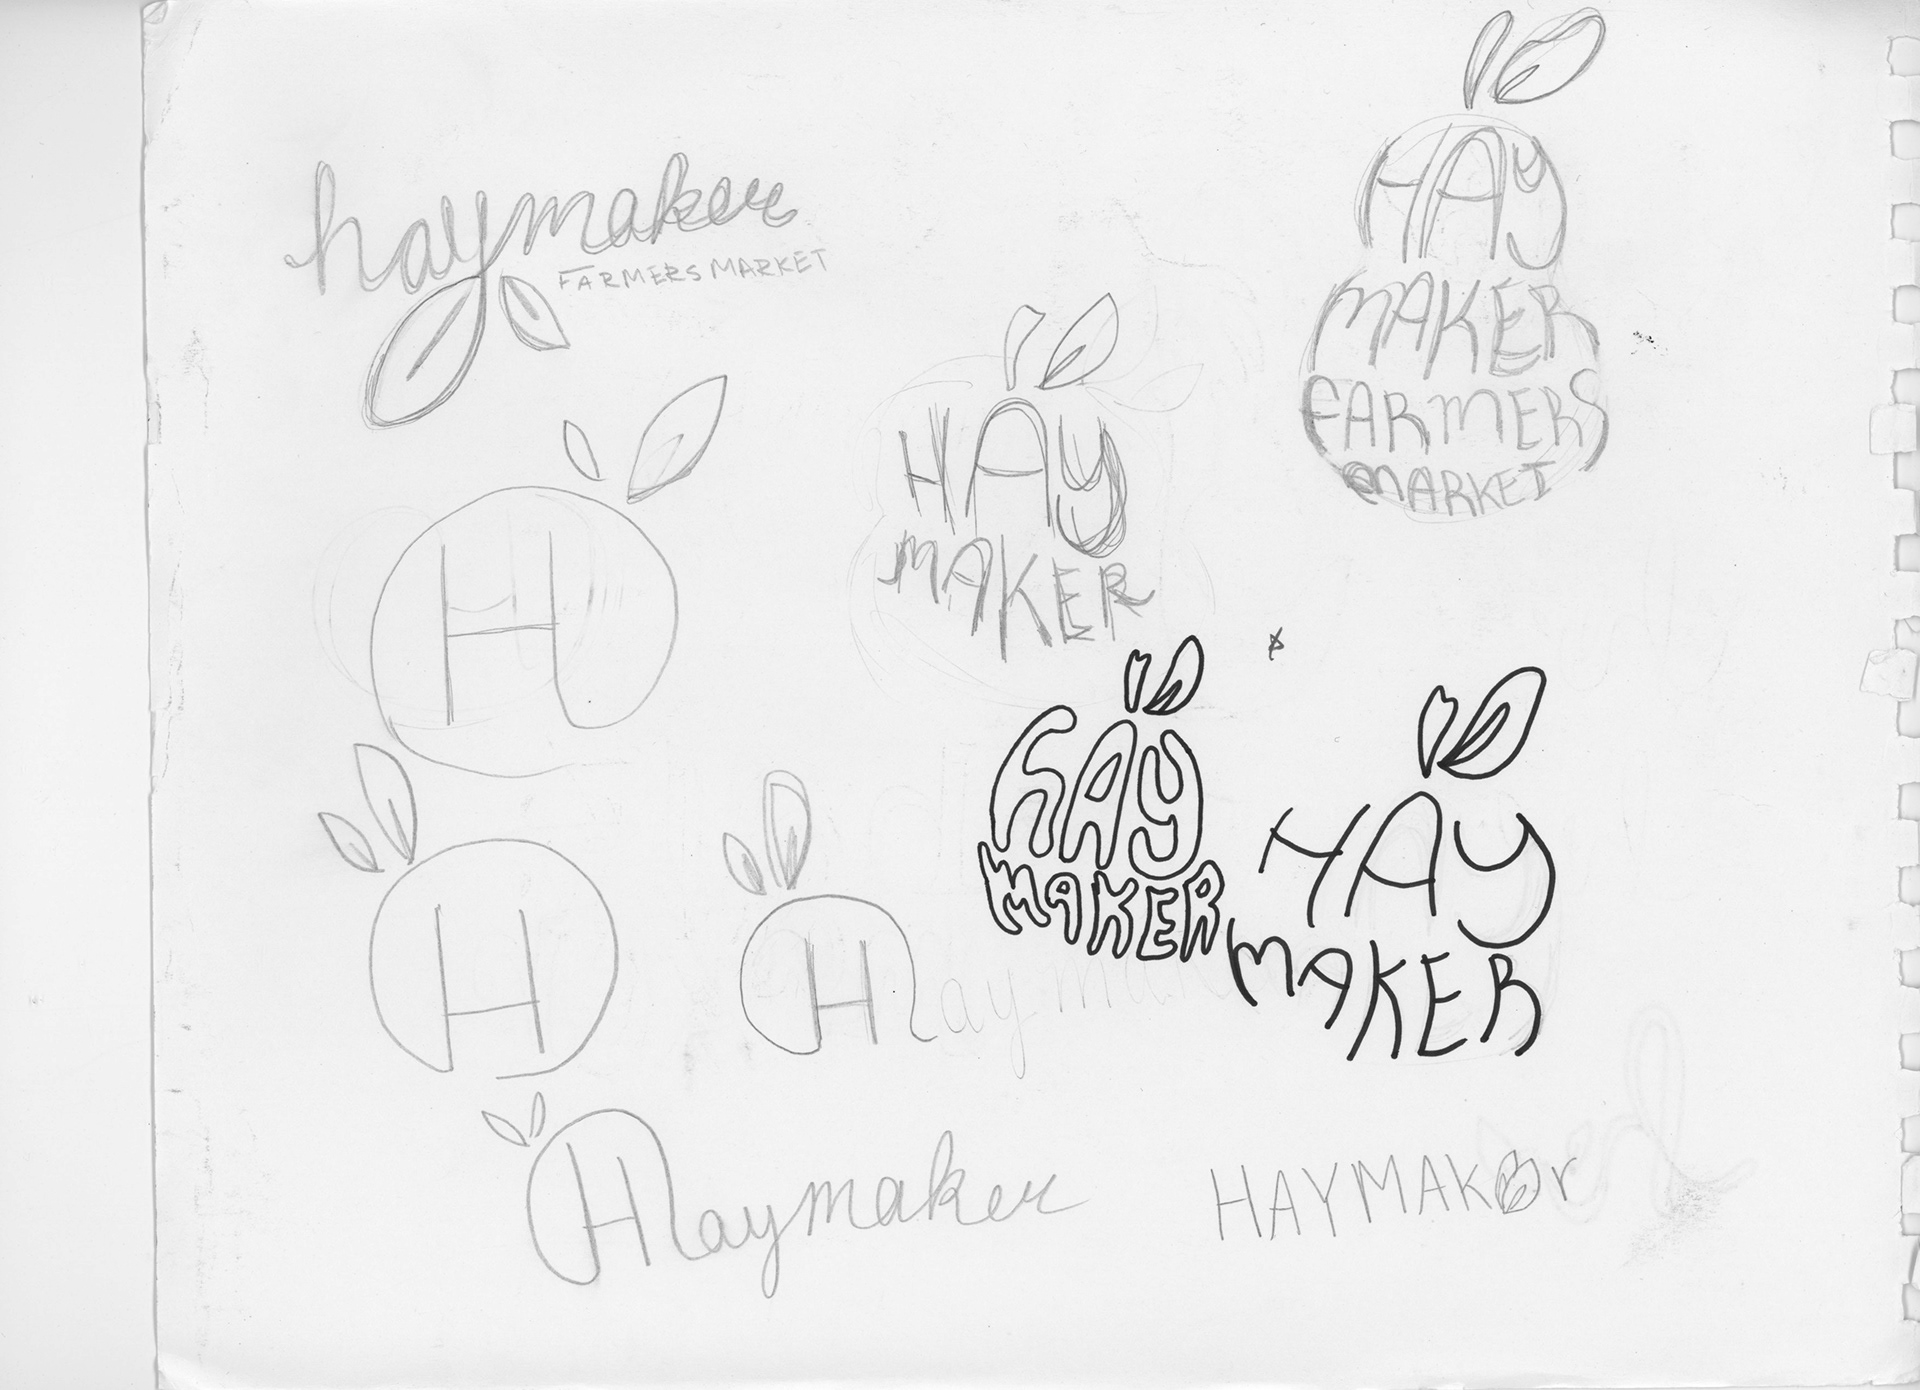 haymaker
FARMERS MARKET
HAY
MAKER
FARMERS
MARKET
HAY
MAKER
H
hAY
MAKER
HAY
MAKER
H
H
aymaker
Haymaker
HAYMAKer